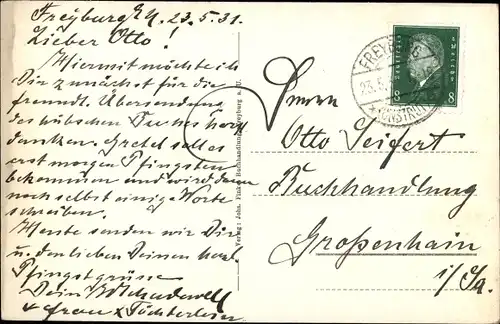 Freyburg, 23.5.31.
Lieber Otto!
Hiermit möchte ich
Dir zunächst für die
freundl. Übersendung
des hübschen herzl.
danken. Gretel soll es
erst morgen Pfingsten
bekommen und wird dann
noch selbst einige Worte
schreiben.
Heute senden wir Dir
u. den lieben Deinen herzl.
Pfingstgrüsse
Dein
Frau & Töchterlein
Verlag: Johs. Buchhandlung, Freyburg a. U.
FREYBURG
23.5.
Deutsches Reich
8 8
Herrn
Otto Seifert
Buchhandlung
Großenhain
i/Sa.